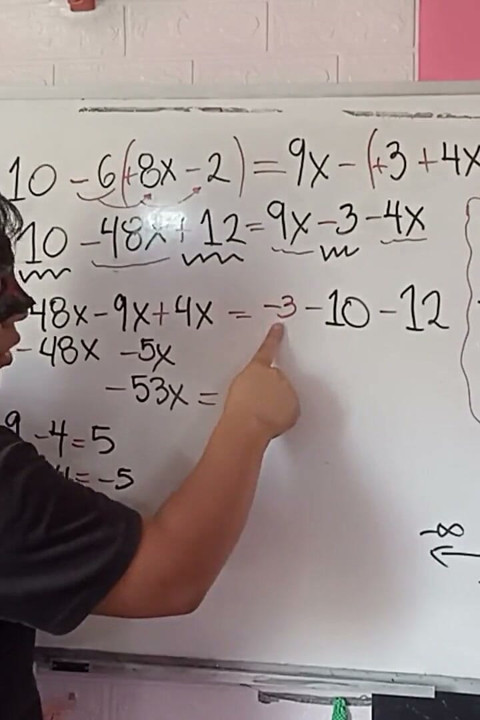 10 - 6(+8x - 2) = 9x - (+3 + 4x
10 - 48x + 12 = 9x - 3 - 4x
48x - 9x + 4x = -3 - 10 - 12
- 48x - 5x
- 53x =
9 - 4 = 5
= -5
-∞